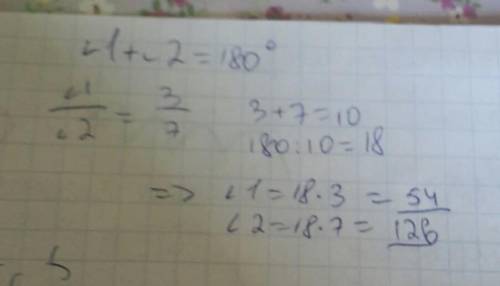 ∠1+∠2=180°
∠1/∠2 = 3/7
3+7=10
180:10=18
=> ∠1=18·3 = 54
∠2=18·7= 126